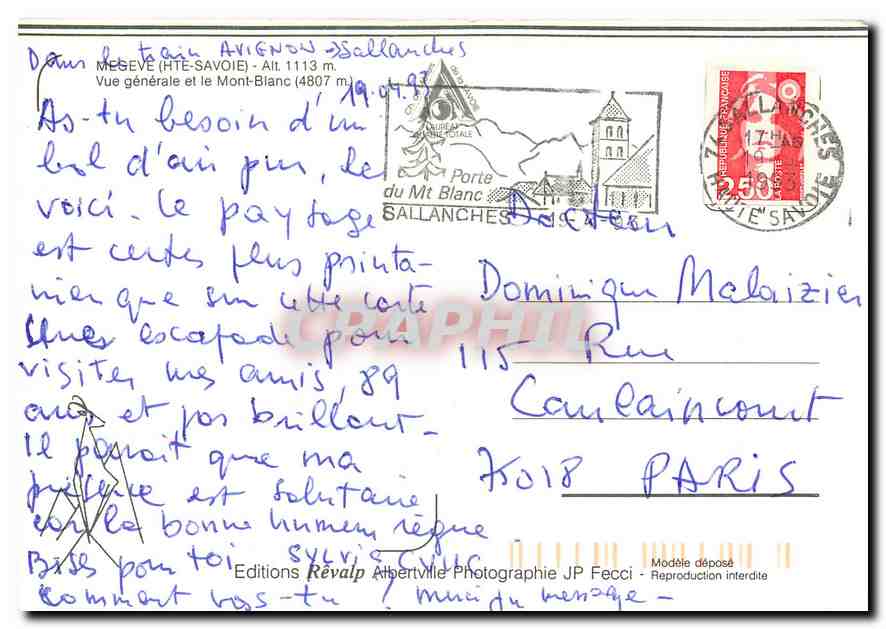 Dans le train AVIGNON → Sallanches
MEGEVE (HTE-SAVOIE) - Alt. 1113 m.
Vue générale et le Mont-Blanc (4807 m.)
19.04.93
As-tu besoin d'un
bol d'air pur, le
voici. Le paysage
est certes plus printa-
nier que sur cette carte
escapade pour
visiter mes amis, 89
ans et pas brillant.
Il paraît que ma
présence est salutaire
car la bonne humeur règne
Bises pour toi Sylvie
Comment vas-tu ? Merci du message -
Porte
du Mt Blanc
SALLANCHES
74 SALLANCHES
17H
19-4
1993
HAUTE SAVOIE
REPUBLIQUE FRANÇAISE
2,50
LA POSTE
Docteur
Dominique Malaizier
115 Rue
Caulaincourt
75018 PARIS
CPAPHIL
Editions Révalp Albertville Photographie JP Fecci - Modèle déposé
Reproduction interdite